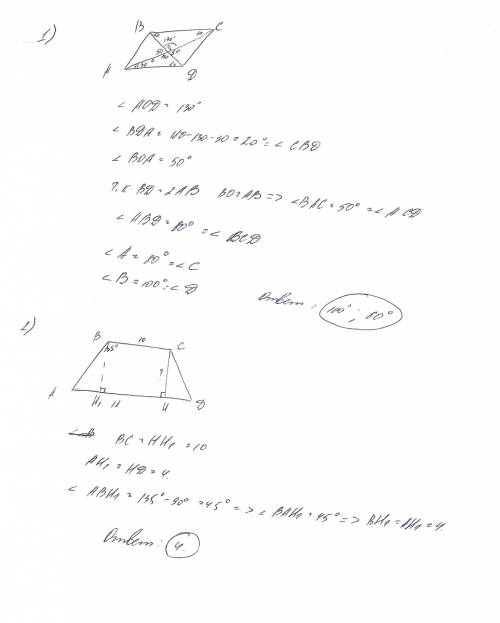 1)
B C
130°
50
30°
A D
∠ AOD = 130°
∠ BDA = 180-130-30 = 20° = ∠ CBD
∠ BOA = 50°
т.к BD = 2AB BO = AB => ∠ BAC = 50° = ∠ ACD
∠ ABD = 80° = ∠ BCD
∠ A = 80° = ∠ C
∠ B = 100° = ∠ D
Ответ: 100°; 80°
2)
B 10 C
135°
?
A H₁ H D
BC = HH₁ = 10
AH₁ = HD = 4.
∠ ABH₁ = 135° - 90° = 45° => ∠ BAH₁ = 45° => BH₁ = AH₁ = 4.
Ответ: 4.